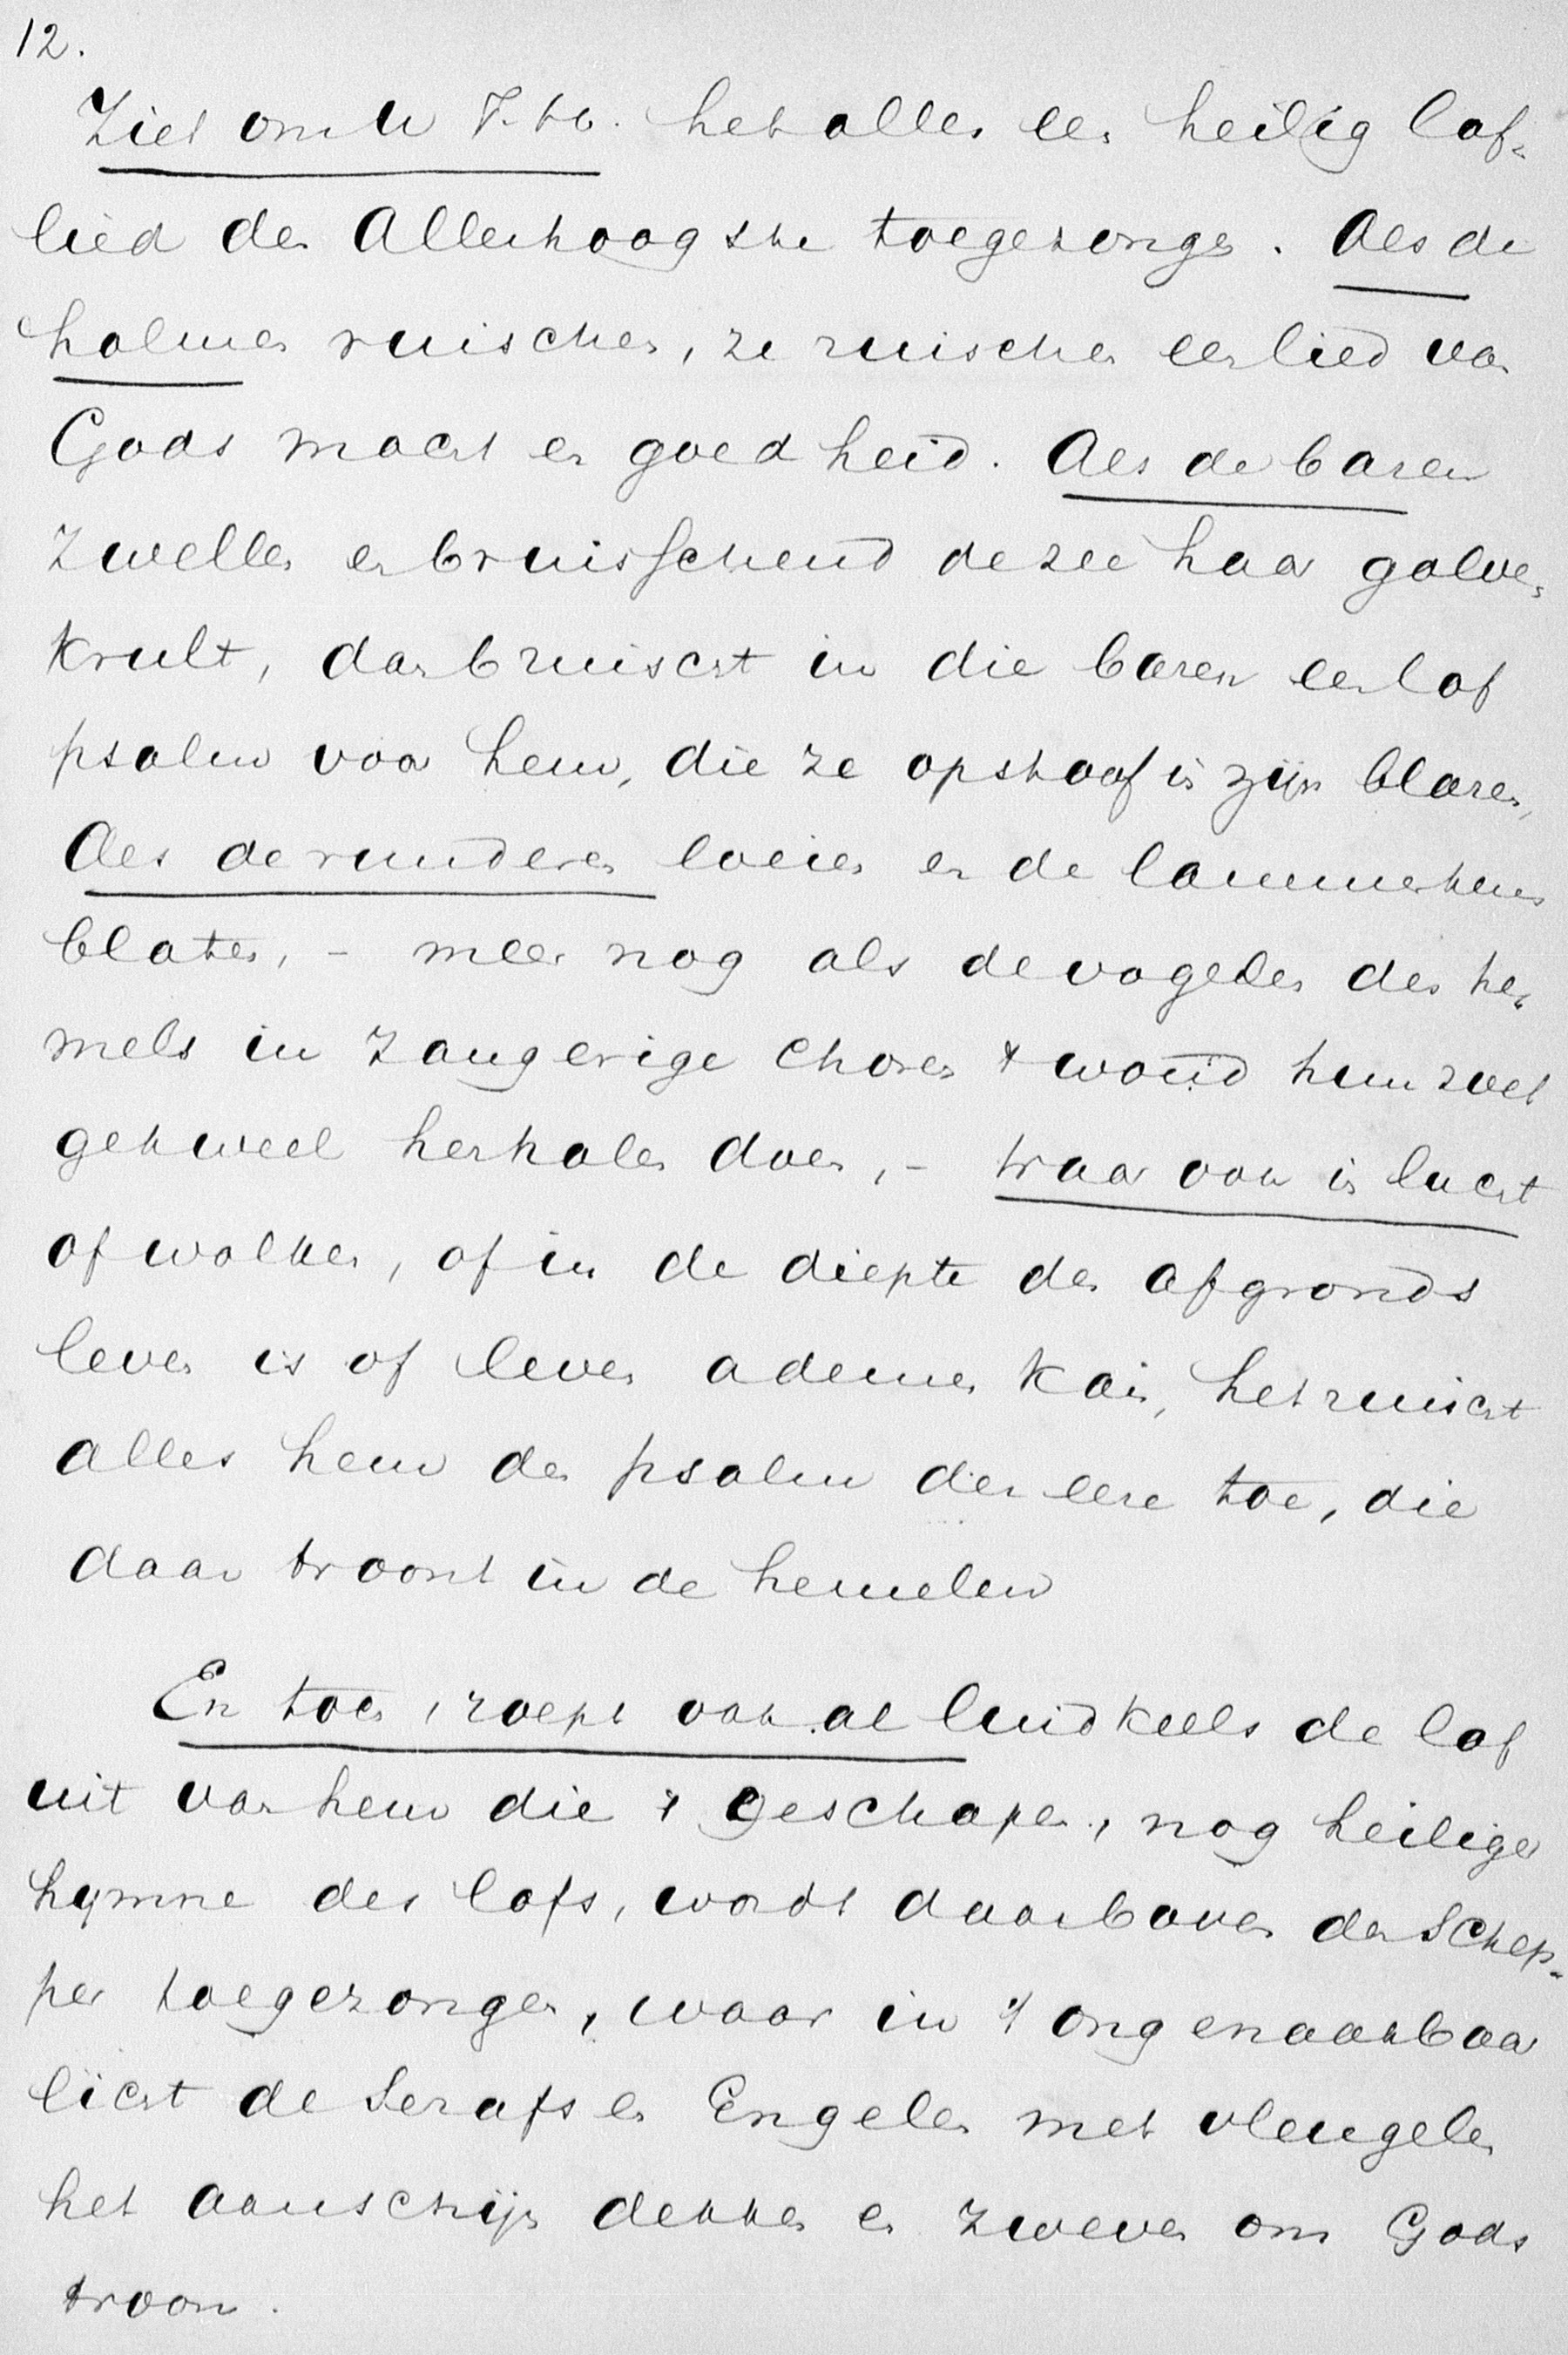 12.
Ziet om U T. br. het alles een heilig lof-
lied den Allerhoogste toegezongen. Als de
halmen ruischen, ze ruischen een lied van
Gods macht en goedheid. Als de baren
zwellen en bruisschend de zee haar golven
krult, dan bruischt in die baren een lof
psalm voor hem, die ze opstoof in zijn blaren,
Als de runderen loeien en de lammerkens
blaten, - meer nog als de vogelen des he-
mels in zangerige choren 't woud hun zoet
gekweel herhalen doen, - waar ook in lucht
of wolken, of in de diepte des afgronds
leven is of leven ademen kan, het ruischt
alles hem den psalm der eere toe, die
daar troont in de hemelen
En toch, roept ook al luidkeels de lof
uit van hem die 't geschapen, nog heiliger
hymne des lofs, wordt daarboven den Schep-
per toegezongen, waar in 't ongenaakbaar
licht de Serafs en Engelen met vleugelen
het aanschijn dekken en zweven om Gods
troon.